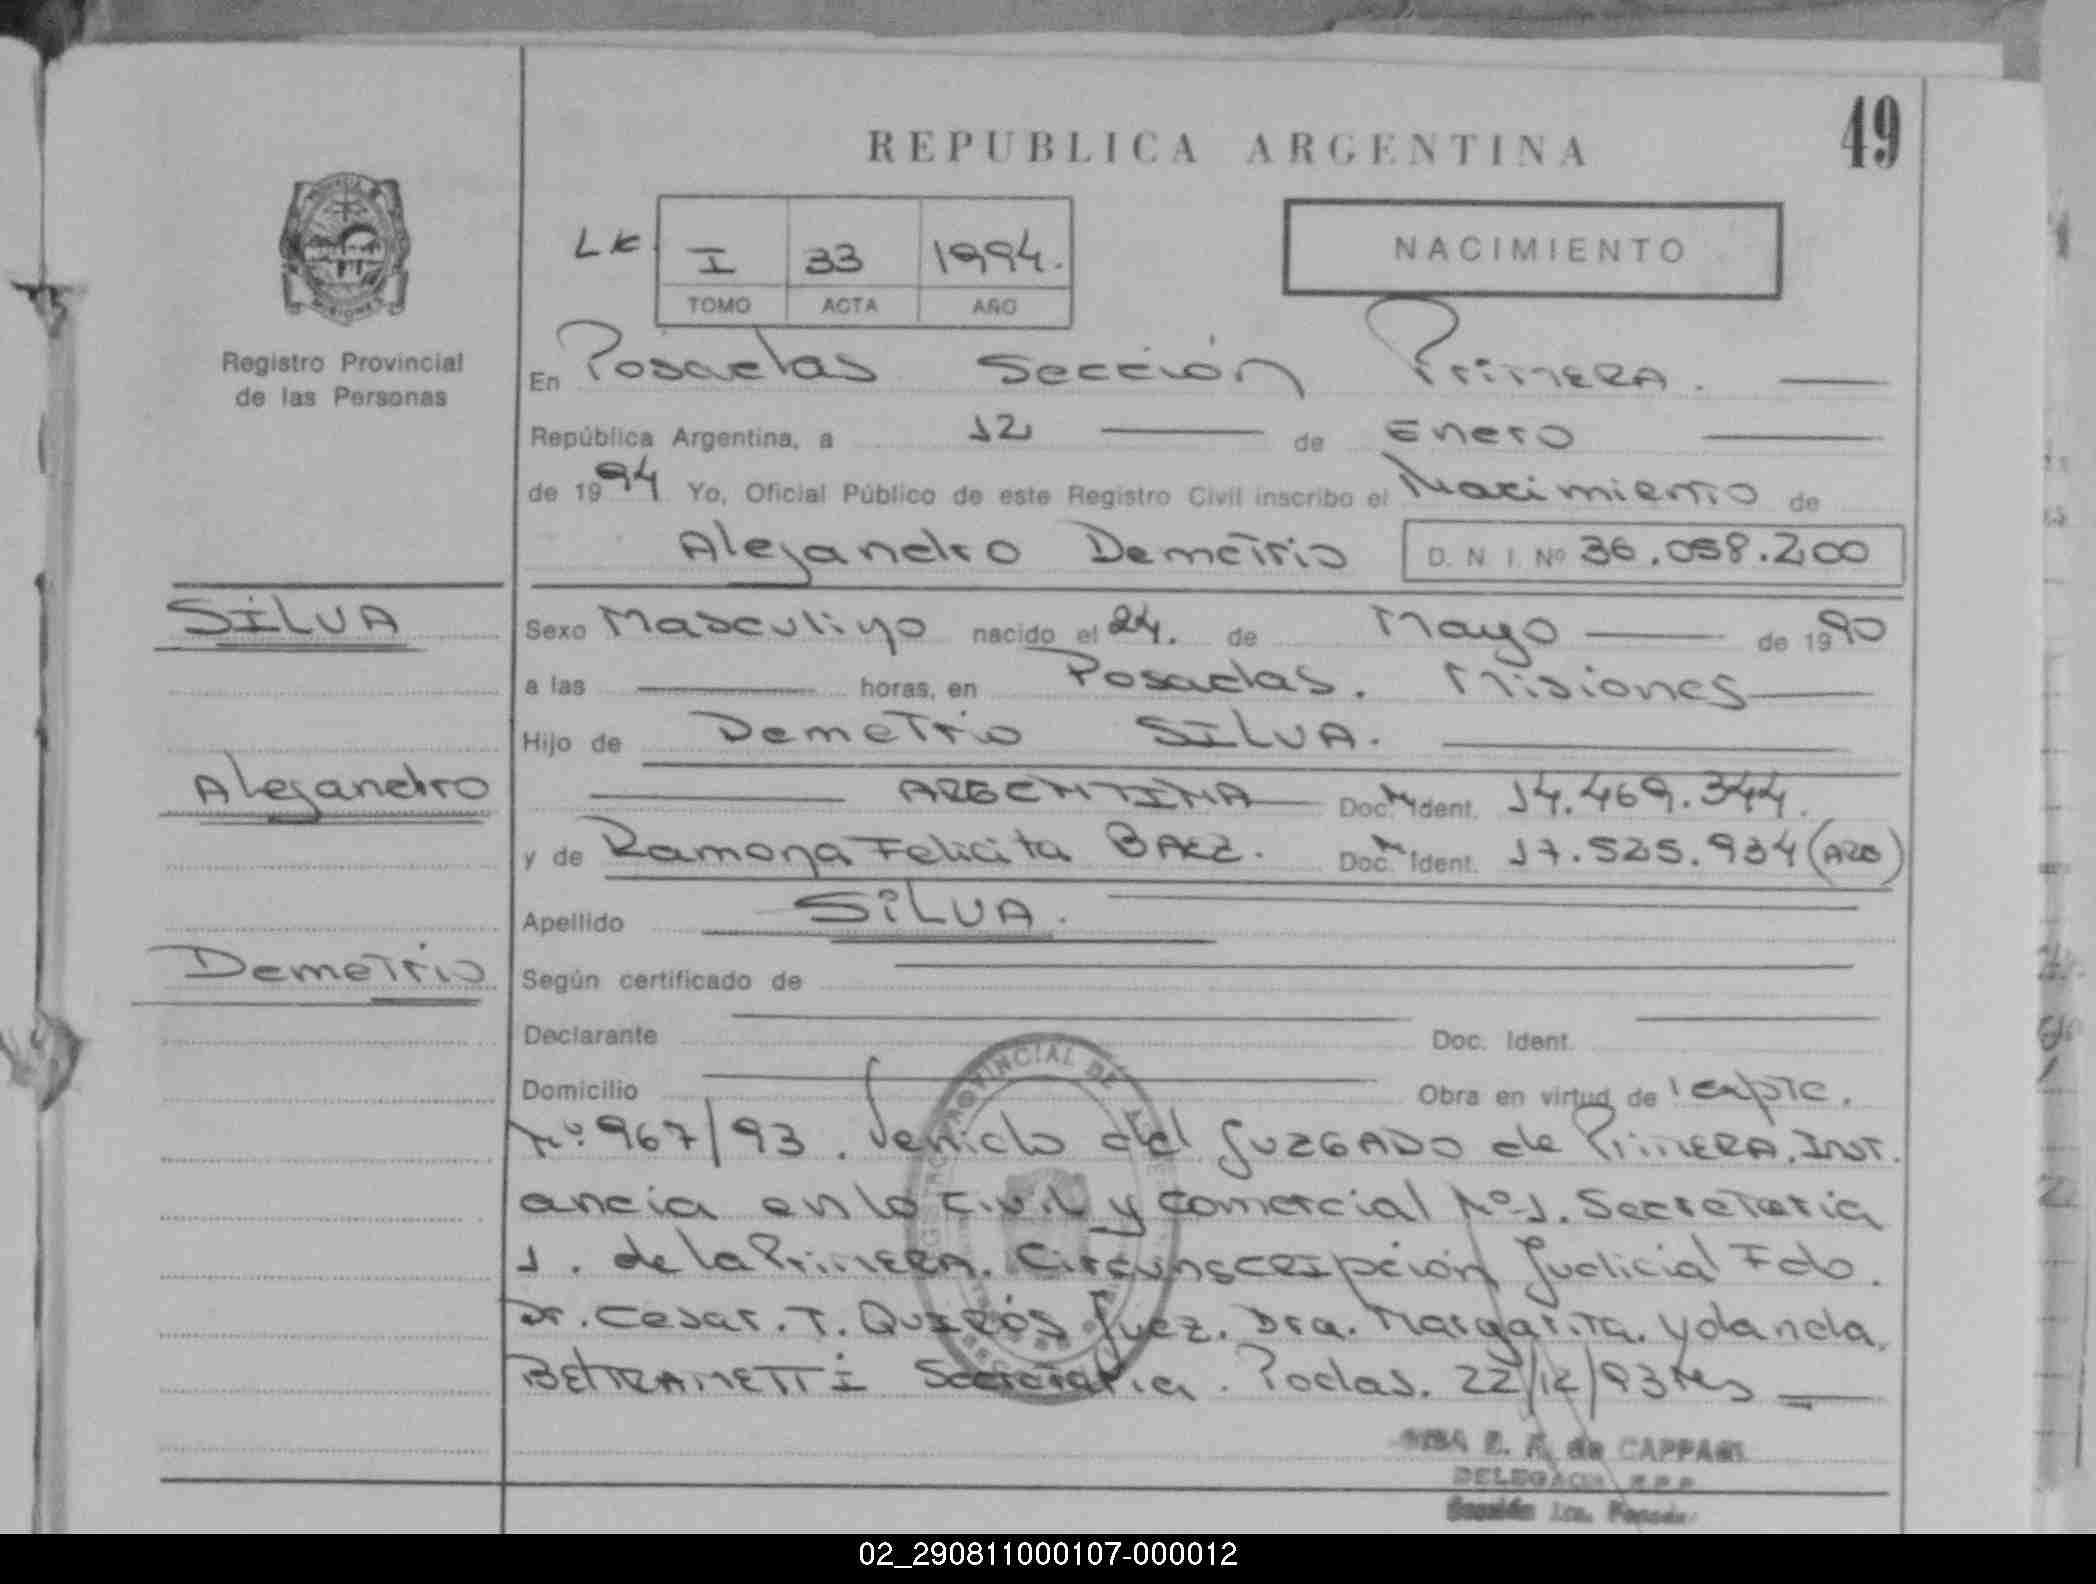 49
REPUBLICA ARGENTINA
NACIMIENTO
I 33 1994.
TOMO ACTA AÑO
PROVINCIA DE MISIONES
Registro Provincial
de las Personas
En Posadas Sección Primera.
República Argentina, a 12 de Enero
de 1994 Yo, Oficial Público de este Registro Civil inscribo el Nacimiento de
Alejandro Demetrio D. N. I. Nº 36.058.200
SILVA
Alejandro
Demetrio
Sexo Masculino nacido el 24. de Mayo de 1990
a las horas, en Posadas. Misiones
Hijo de Demetrio SILVA.
ARGENTINA Doc. Ident. 14.469.344.
y de Ramona Felicita BAEZ. Doc. Ident. 17.525.934 (ARG)
Apellido SILVA.
Según certificado de
Declarante Doc. Ident.
Domicilio Obra en virtud de expte.
Nº 967/93. Venido del Juzgado de Primera. Inst.
ancia en lo Civil y Comercial Nº 1. Secretaria
1. de la Primera. Circunscripción Judicial Fdo.
Dr. Cesar. T. Quirós Juez. Dra. Margarita. Yolanda.
BELTRAMETTI Secretaria. Podas. 22/12/93
E. de CAPPARI
DELEGADA R.P.P.
Sección 1ra. Posadas
02_290811000107-000012